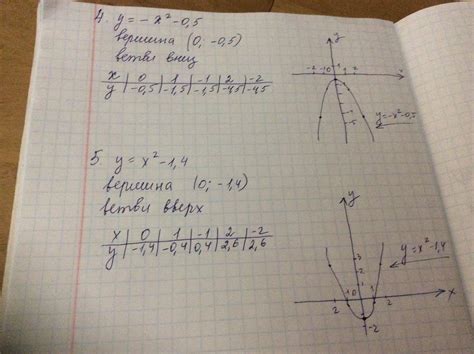 4. y = - x² - 0,5
вершина (0; -0,5)
ветви вниз
x | 0 | 1 | -1 | 2 | -2
y | -0,5 | -1,5 | -1,5 | -4,5 | -4,5
y
-2 -1 0 1 2
-5
x
y=-x²-0,5
5. y = x² - 1,4
вершина (0; -1,4)
ветви вверх
x | 0 | 1 | -1 | 2 | -2
y | -1,4 | -0,4 | 0,4 | 2,6 | 2,6
y
y=x²-1,4
3
2
1
2 1 0 1 2 x
-2